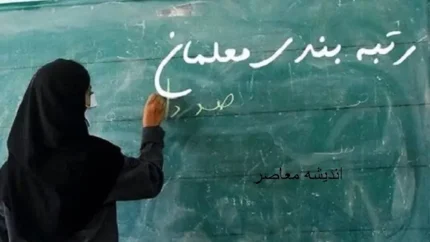 رتبه بندی معلمان
اندیشه معاصر